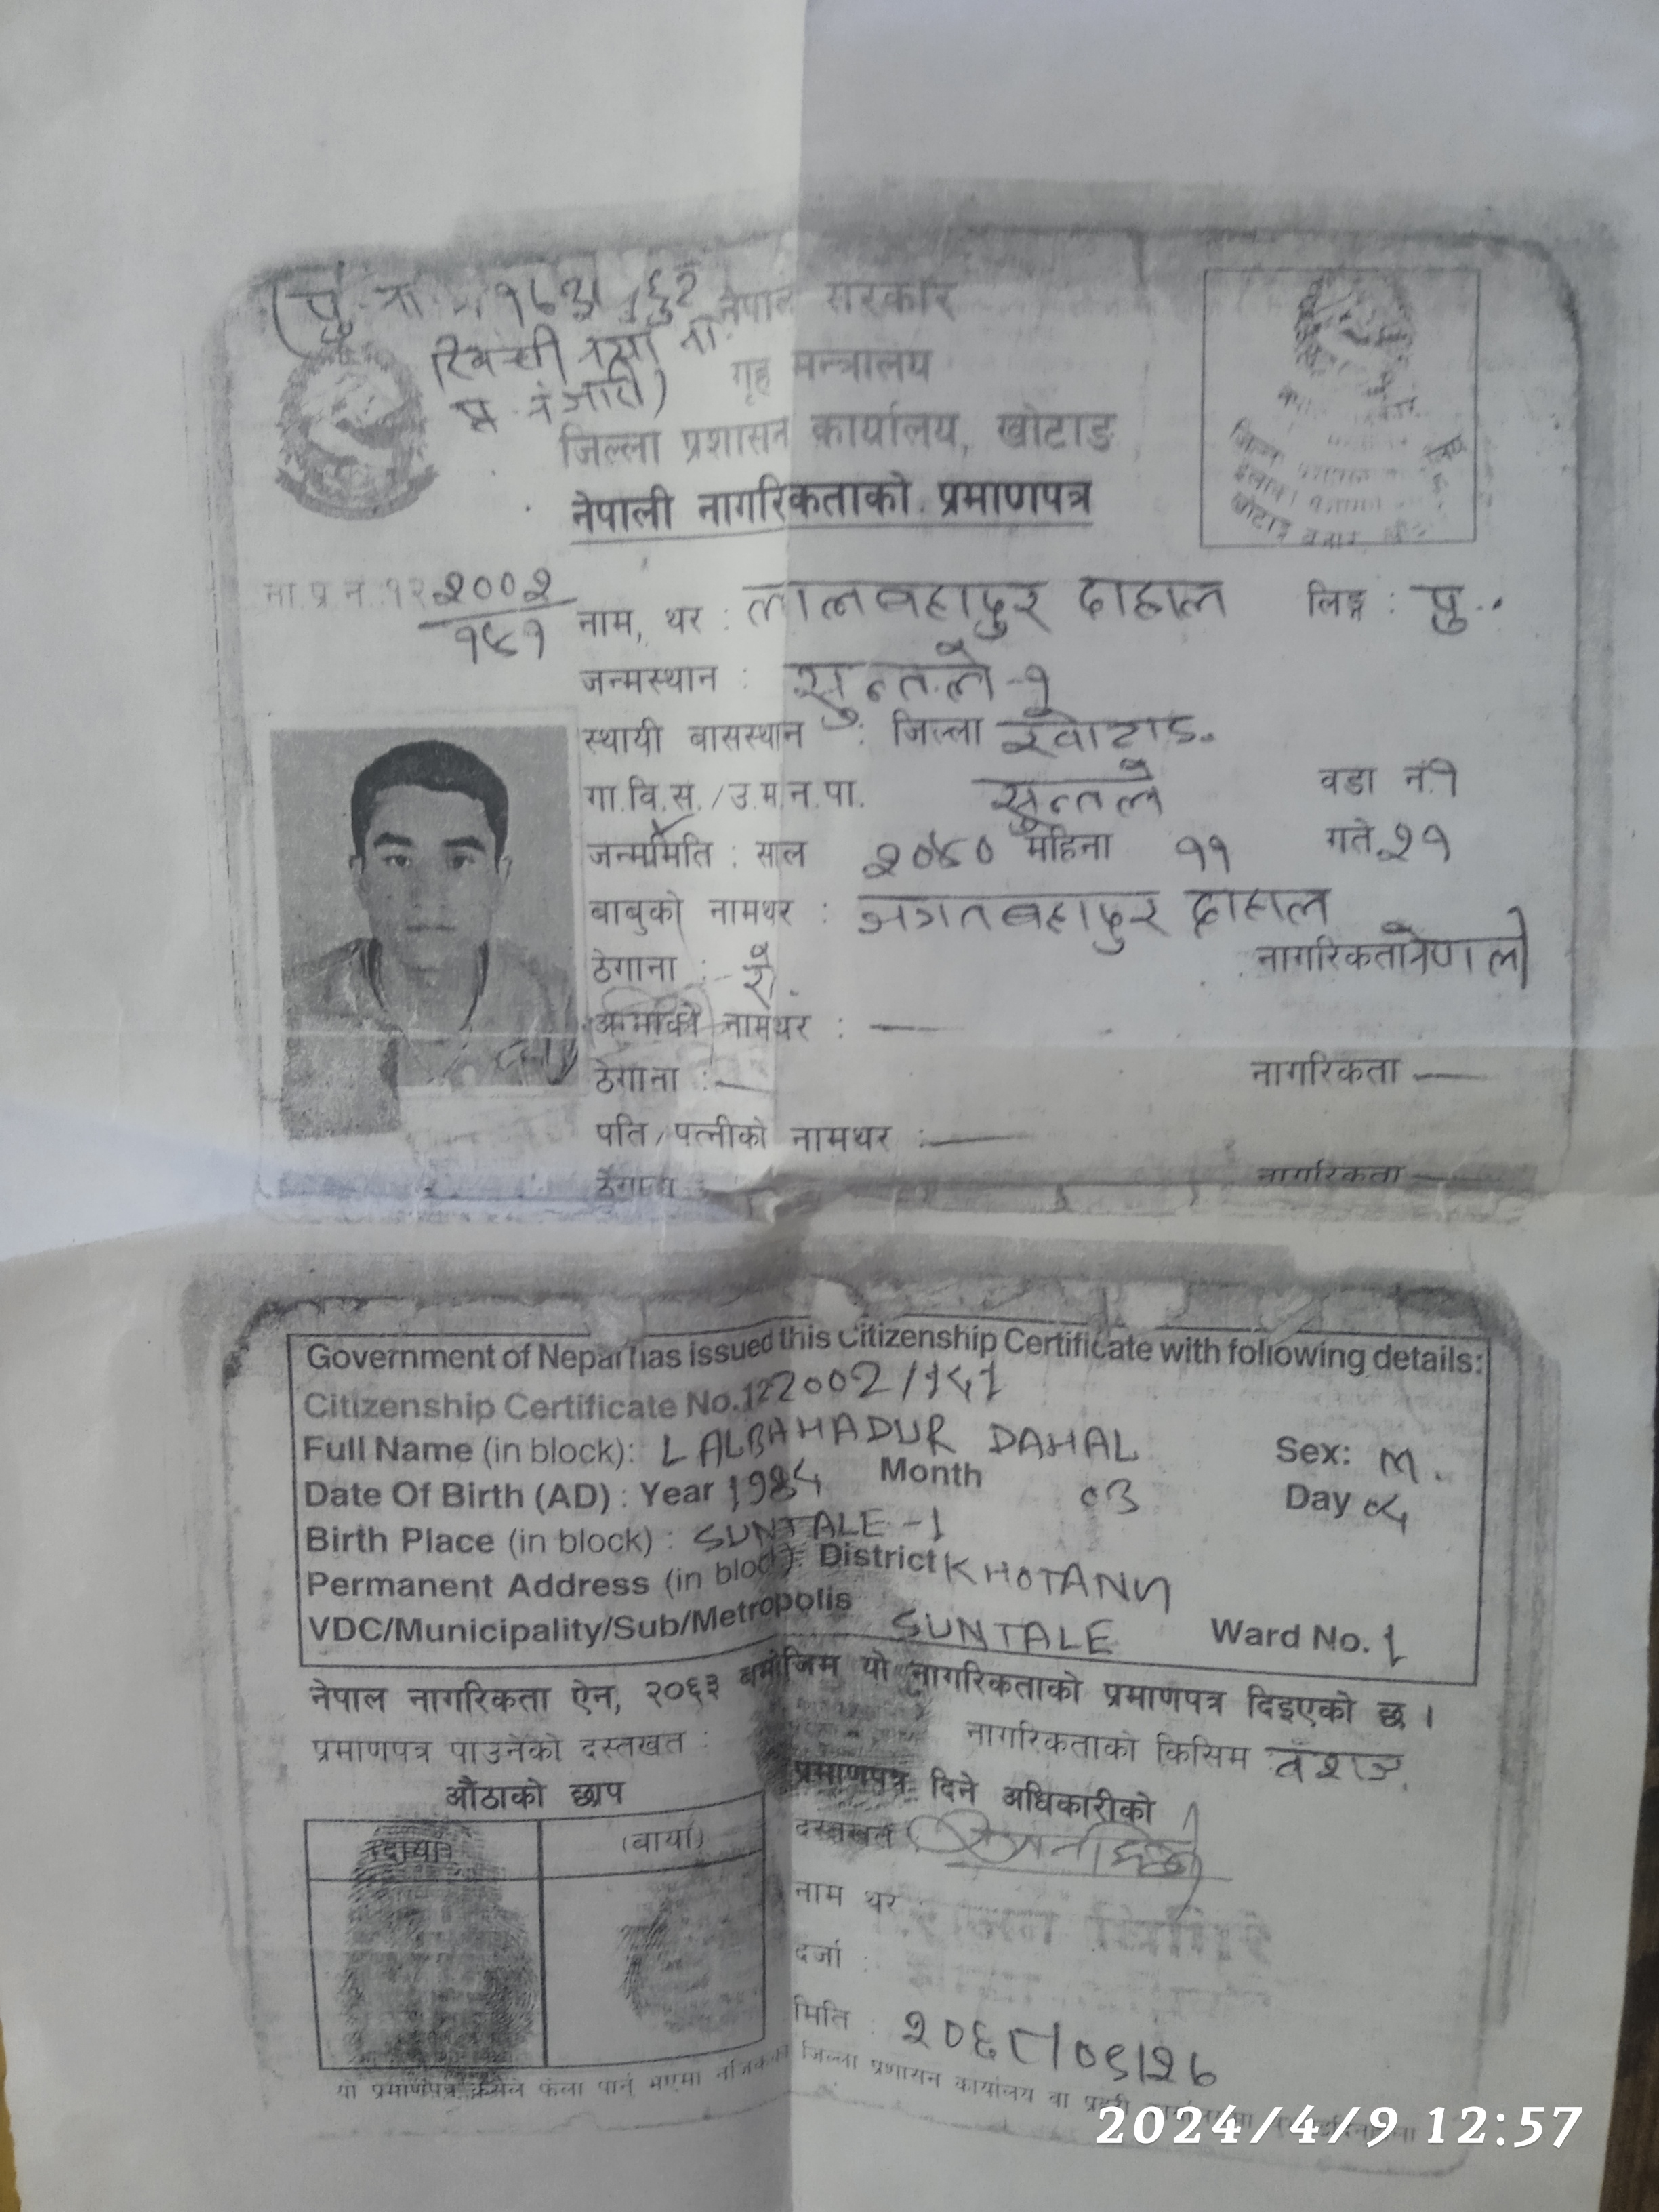 नेपाल सरकार
गृह मन्त्रालय
जिल्ला प्रशासन कार्यालय, खोटाङ
नेपाली नागरिकताको प्रमाणपत्र
ना.प्र.नं. १२२००२/१५१
नाम, थर : लालबहादुर दाहाल लिङ्ग : पु.
जन्मस्थान : सुन्तले-१
स्थायी बासस्थान : जिल्ला खोटाङ
गा.वि.स./उ.म.न.पा. सुन्तले वडा नं.१
जन्ममिति : साल २०४० महिना ११ गते २१
बाबुको नामथर : जगतबहादुर दाहाल
ठेगाना : ऐ. नागरिकता नेपाली
आमाको नामथर : —
ठेगाना :— नागरिकता —
पति/पत्नीको नामथर :—
ठेगाना नागरिकता —
Government of Nepal has issued this Citizenship Certificate with following details:
Citizenship Certificate No.122002/151
Full Name (in block): LALBAHADUR DAHAL Sex: M.
Date Of Birth (AD) : Year 1984 Month 03 Day 04
Birth Place (in block) : SUNTALE-1
Permanent Address (in block): District KHOTANG
VDC/Municipality/Sub/Metropolis SUNTALE Ward No. 1
नेपाल नागरिकता ऐन, २०६३ बमोजिम यो नागरिकताको प्रमाणपत्र दिइएको छ ।
प्रमाणपत्र पाउनेको दस्तखत : नागरिकताको किसिम वंशज
औंठाको छाप प्रमाणपत्र दिने अधिकारीको
(दायाँ) (बायाँ) दस्तखत
नाम थर :
दर्जा :
मिति : २०६८/०९/२७
यो प्रमाणपत्र कसैले फेला पारे भएमा नजिकको जिल्ला प्रशासन कार्यालय वा प्रहरी
2024/4/9 12:57